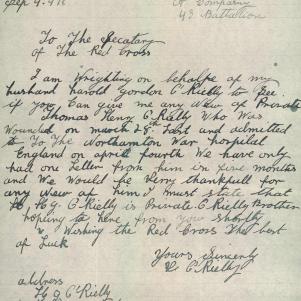 Sep 4.
A Company
43 Battalion
To The Secatary
of The Red Cross
I am Wrighting on behalfe of my
husband harold Gordon O'Rielly to see
if you Can give me any news of Private
Thomas Henry O'Rielly Who Was
Wounded on march 28. Last and admitted
to To The Northamton War hospital
England on april fourth We have only
had one letter from him in five months
and We Would be Very thankfull for
any news of him I must state that
H G. O'Rielly is Private O'Rielly Brother
hopeing to here from you shortly
Wishing the Red Cross The best
of Luck
Yours Sincerly
O'Rielly
address
H G O'Rielly